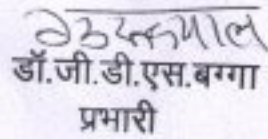 डॉ.जी.डी.एस.बग्गा
प्रभारी